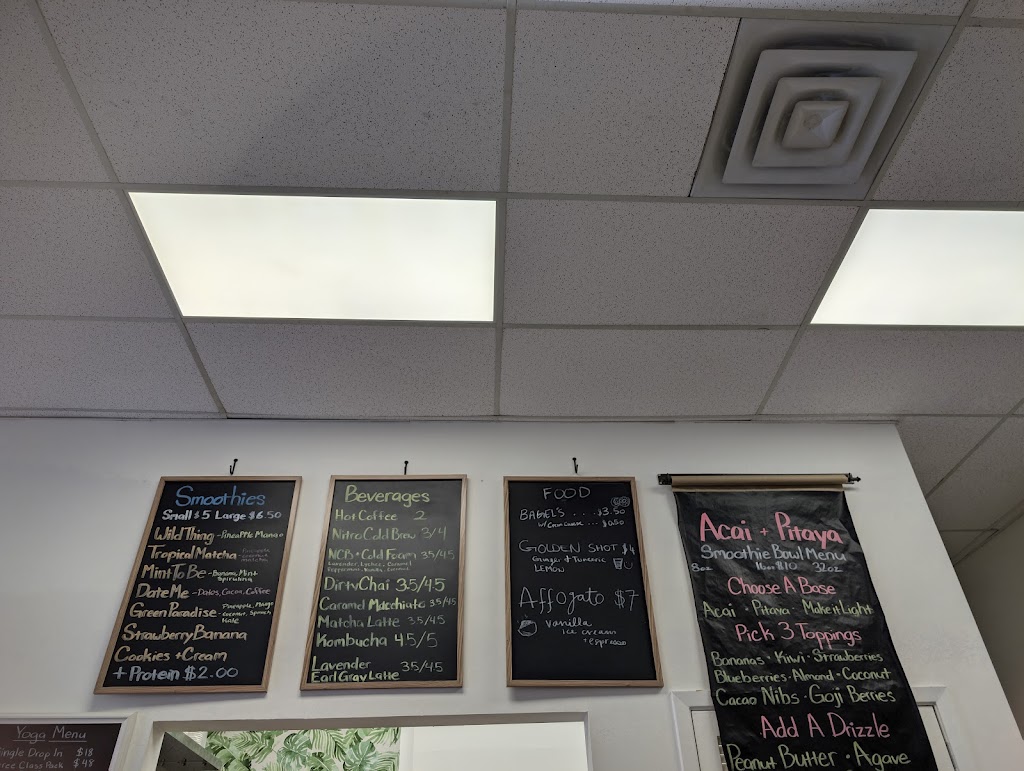 Smoothies
Small $5 Large $6.50
Wild Thing - Pineapple Mango
Tropical Matcha
Mint To Be - Banana, Mint
Spirulina
Date Me - Dates, Cacao, Coffee
Green Paradise - Pineapple, Mango
Coconut, Spinach
Kale
Strawberry Banana
Cookies + Cream
+ Protein $2.00
Beverages
Hot Coffee 2
Nitro Cold Brew 3/4
NCB + Cold Foam 35/45
Lavender, Lychee, Caramel
Peppermint, Vanilla, Caramel
Dirty Chai 35/45
Caramel Macchiato 35/45
Matcha Latte 35/45
Kombucha 45/5
Lavender
Earl Gray Latte 35/45
FOOD
BAGELS . . . . $3.50
w/ Cream Cheese . . . $0.50
GOLDEN SHOT $4
Ginger + Turmeric
LEMON
Affogato $7
Vanilla
ice cream
+ espresso
Acai + Pitaya
Smoothie Bowl Menu
8oz 16oz $10 32oz
Choose A Base
Acai • Pitaya • Make it Light
Pick 3 Toppings
Bananas • Kiwi • Strawberries
Blueberries • Almond • Coconut
Cacao Nibs • Goji Berries
Add A Drizzle
Peanut Butter • Agave
Yoga Menu
Single Drop In $18
Class Pack $48